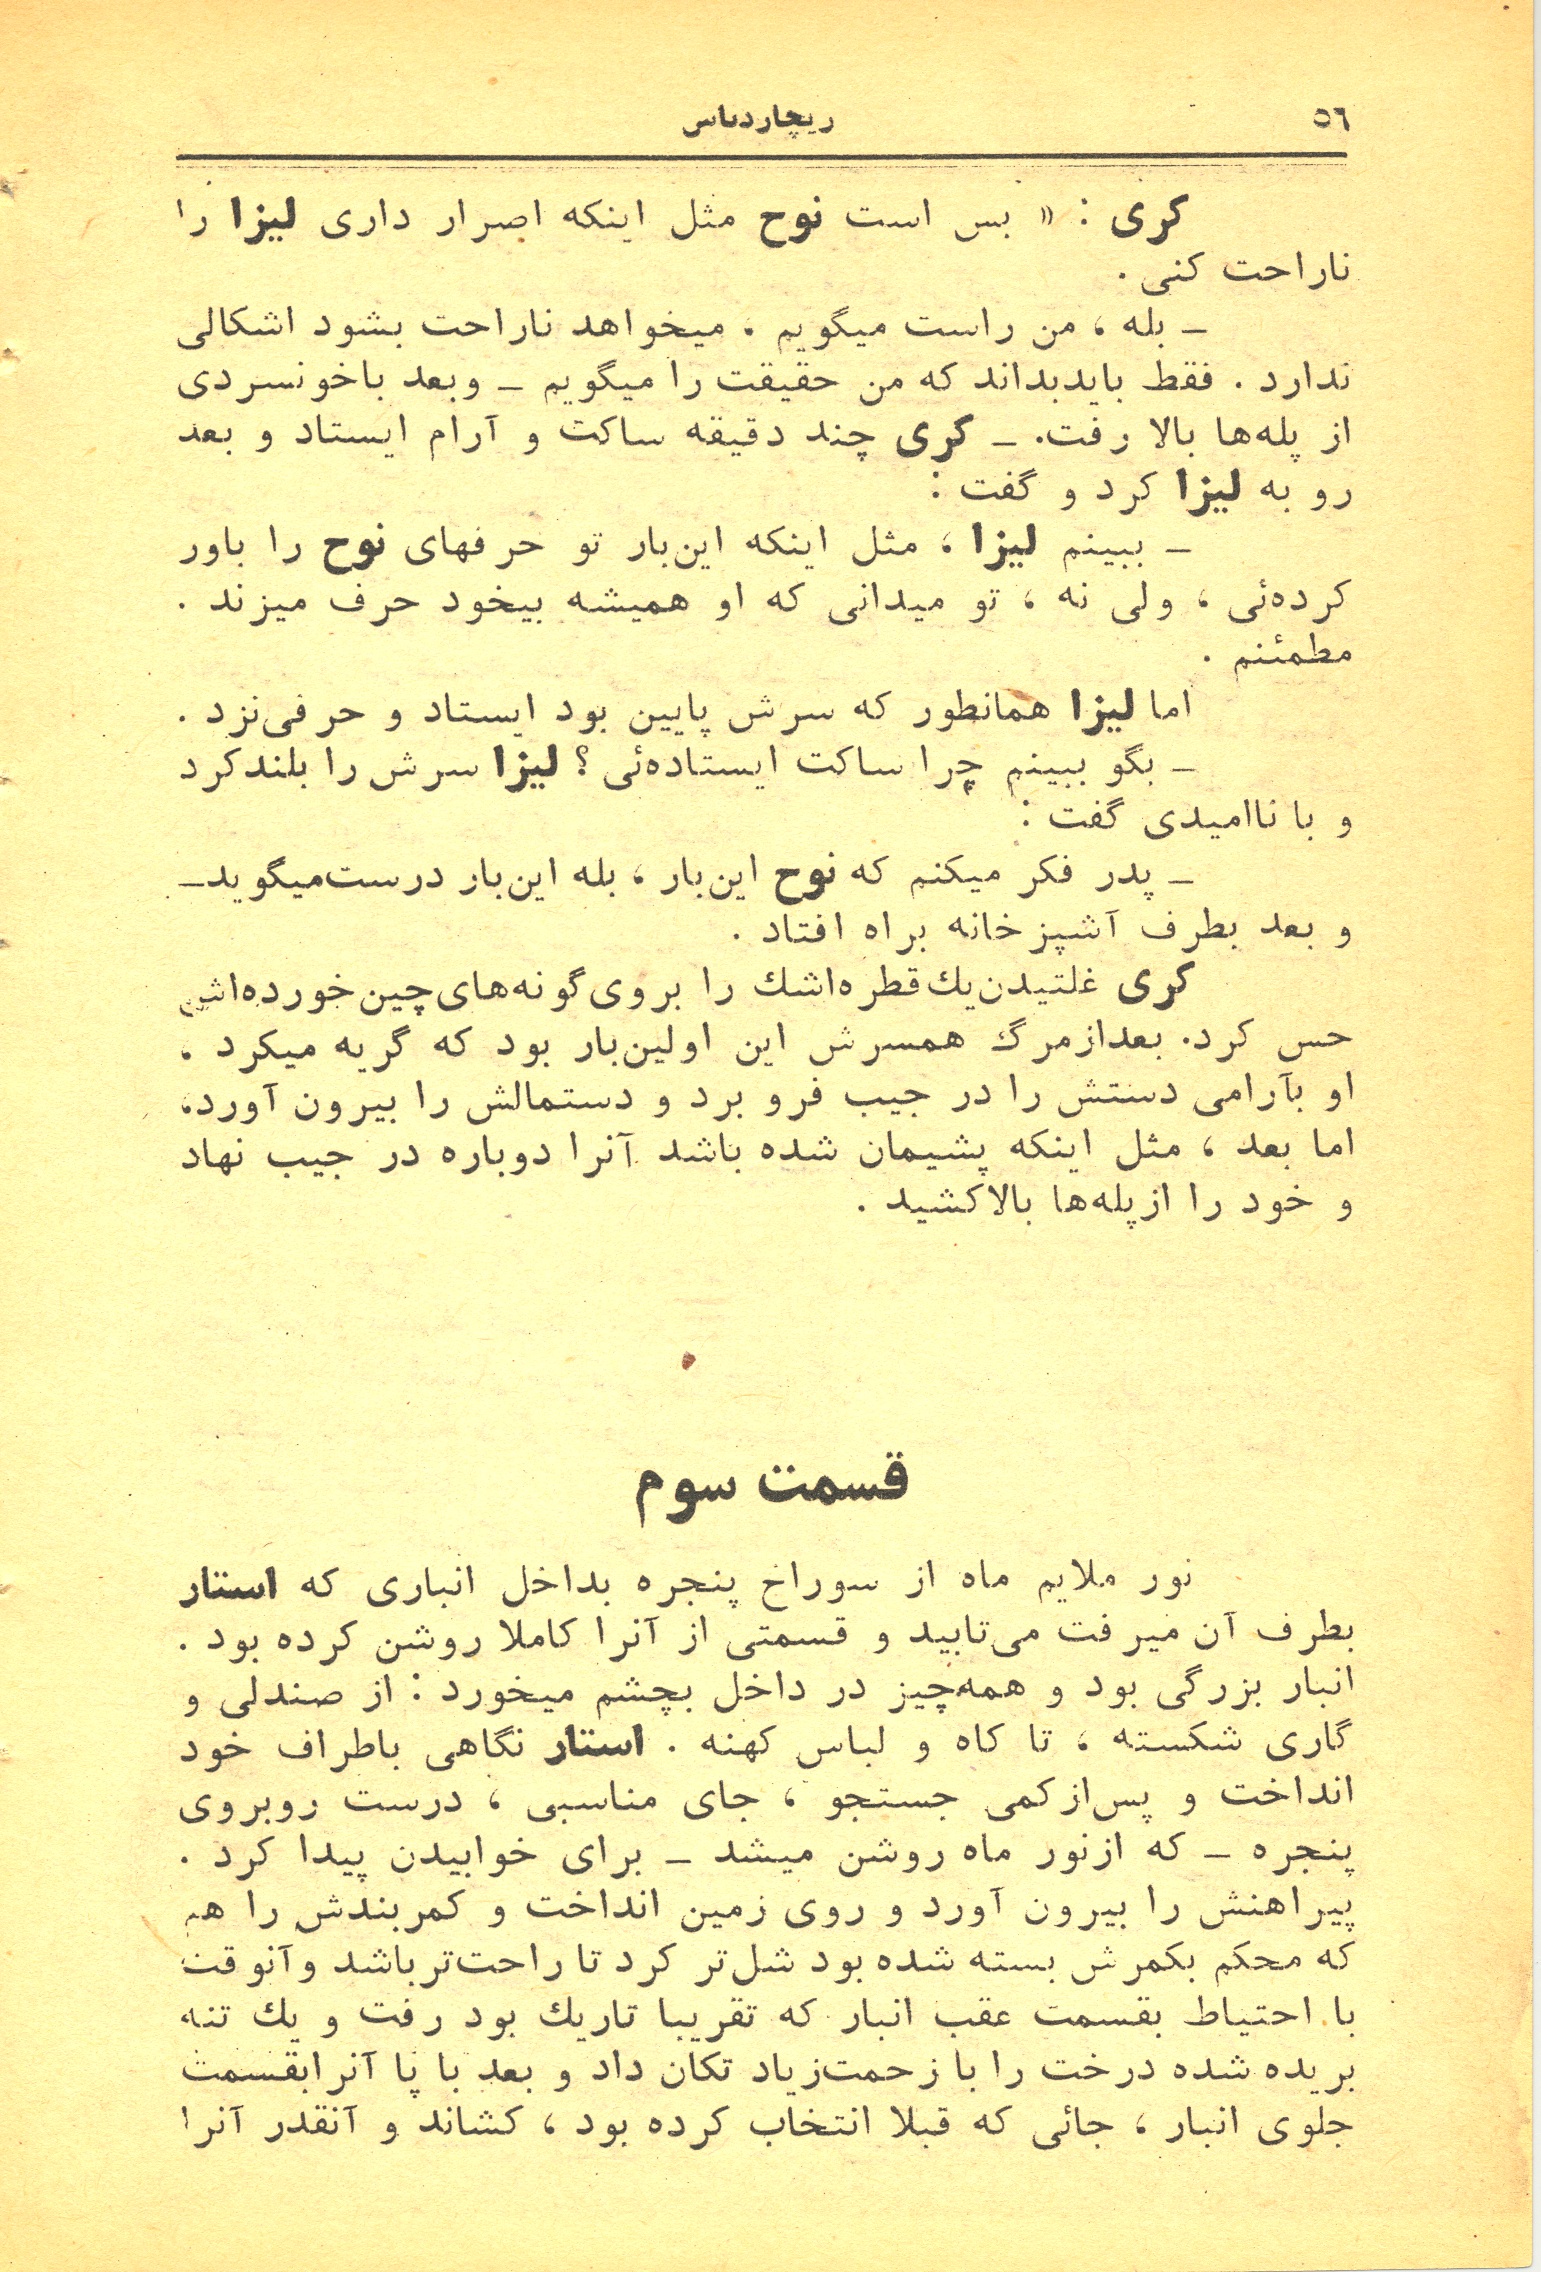 ٥٦
ریچارد ناس
کری : « بس است نوح مثل اینکه اصرار داری لیزا را
ناراحت کنی .
ـ بله ، من راست میگویم . میخواهد ناراحت بشود اشکالی
ندارد . فقط باید بداند که من حقیقت را میگویم ـ و بعد با خونسردی
از پله‌ها بالا رفت. ـ کری چند دقیقه ساکت و آرام ایستاد و بعد
رو به لیزا کرد و گفت :
ـ ببینم لیزا ، مثل اینکه این‌بار تو حرفهای نوح را باور
کرده‌ئی ، ولی نه ، تو میدانی که او همیشه بیخود حرف میزند .
مطمئنم .
اما لیزا همانطور که سرش پایین بود ایستاد و حرفی‌نزد .
ـ بگو ببینم چرا ساکت ایستاده‌ئی ؟ لیزا سرش را بلندکرد
و با ناامیدی گفت :
ـ پدر فکر میکنم که نوح این‌بار ، بله این‌بار درست‌میگوید ـ
و بعد بطرف آشپزخانه براه افتاد .
کری غلتیدن یك قطره‌اشك را بروی گونه‌های چین خورده‌اش
حس کرد. بعد از مرگ همسرش این اولین‌بار بود که گریه میکرد ،
او بآرامی دستش را در جیب فرو برد و دستمالش را بیرون آورد،
اما بعد ، مثل اینکه پشیمان شده باشد آنرا دوباره در جیب نهاد
و خود را از پله‌ها بالاکشید .
قسمت سوم
نور ملایم ماه از سوراخ پنجره بداخل انباری که استار
بطرف آن میرفت می‌تابید و قسمتی از آنرا کاملا روشن کرده بود .
انبار بزرگی بود و همه‌چیز در داخل بچشم میخورد : از صندلی و
گاری شکسته ، تا کاه و لباس کهنه . استار نگاهی باطراف خود
انداخت و پس‌از کمی جستجو ، جای مناسبی ، درست روبروی
پنجره ـ که از نور ماه روشن میشد ـ برای خوابیدن پیدا کرد .
پیراهنش را بیرون آورد و روی زمین انداخت و کمربندش را هم
که محکم بکمرش بسته شده بود شل‌تر کرد تا راحت‌تر باشد و آنوقت
با احتیاط بقسمت عقب انبار که تقریبا تاریك بود رفت و یك تنه
بریده شده درخت را با زحمت‌زیاد تکان داد و بعد با پا آنرا بقسمت
جلوی انبار ، جائی که قبلا انتخاب کرده بود ، کشاند و آنقدر آنرا